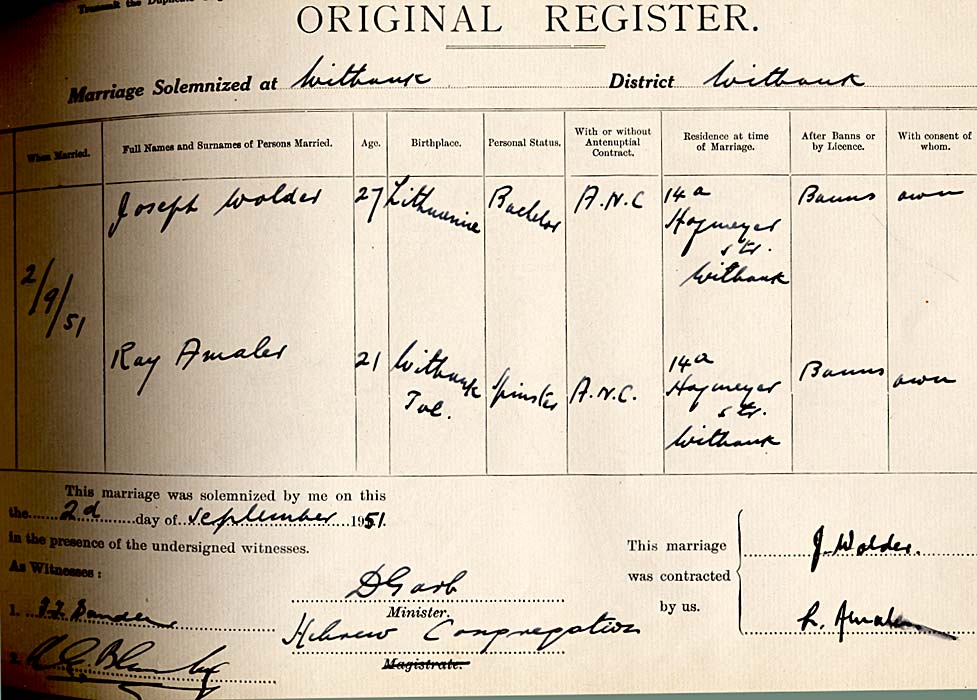 Transmit the Duplicate
ORIGINAL REGISTER.
Marriage Solemnized at Witbank District Witbank
When Married. Full Names and Surnames of Persons Married. Age. Birthplace. Personal Status. With or without Antenuptial Contract. Residence at time of Marriage. After Banns or by Licence. With consent of whom.
2/9/51
Joseph Wolder 27 Lithuania Bachelor A.N.C 14a Hofmeyer str. Witbank Banns own
Ray Amaler 21 Witbank Tvl. Spinster A.N.C. 14a Hofmeyer str. Witbank Banns own
This marriage was solemnized by me on this
the 2d day of September 1951.
in the presence of the undersigned witnesses.
As Witnesses:
1.
2.
DGarb
Minister.
Hebrew Congregation
Magistrate.
This marriage
was contracted
by us.
J. Wolder.
R. Amaler